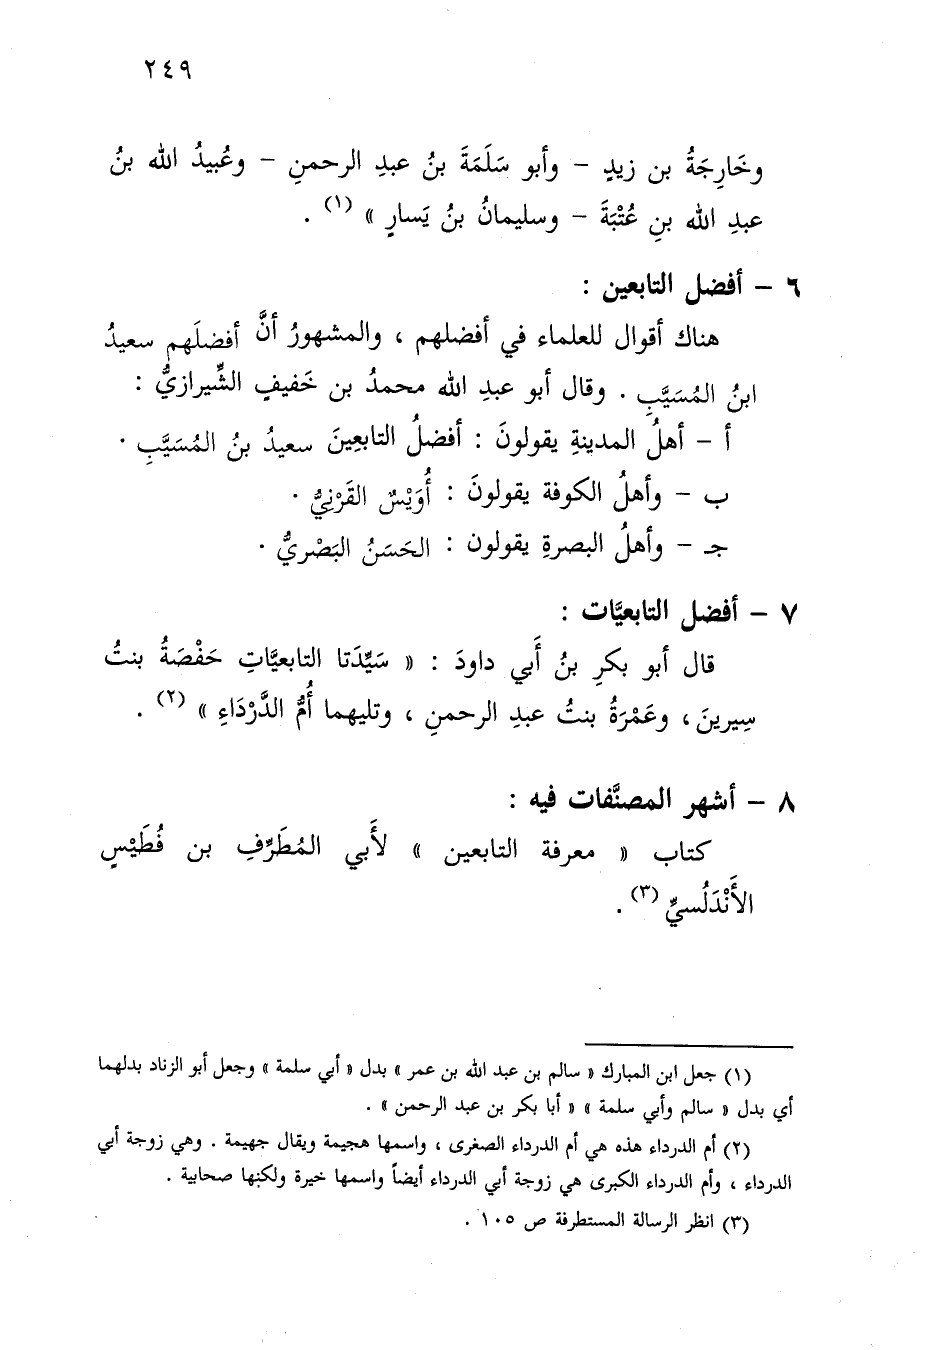 ٢٤٩
وخَارِجَةُ بن زيدٍ – وأبو سَلَمَةَ بنُ عبدِ الرحمنِ – وعُبيدُ الله بنُ
عبدِ الله بنِ عُتْبَةَ – وسليمانُ بنُ يَسارٍ » (١) .
٦ – أفضل التابعين :
هناك أقوال للعلماء في أفضلهم ، والمشهورُ أنَّ أفضلَهم سعيدُ
ابنُ المُسَيَّبِ . وقال أبو عبدِ الله محمدُ بن خَفيفٍ الشِّيرازيُّ :
أ – أهلُ المدينةِ يقولونَ : أفضلُ التابعِينَ سعيدُ بنُ المُسَيَّبِ .
ب – وأهلُ الكوفة يقولونَ : أُوَيْسٌ القَرْنِيُّ .
جـ – وأهلُ البصرةِ يقولون : الحَسَنُ البَصْريُّ .
٧ – أفضل التابعيَّات :
قال أبو بكرِ بنُ أَبي داودَ : « سَيِّدَتا التابعيَّاتِ حَفْصَةُ بنتُ
سِيرينَ ، وعَمْرَةُ بنتُ عبدِ الرحمنِ ، وتليهما أُمُّ الدَّرْدَاءِ » (٢) .
٨ – أشهر المصنَّفات فيه :
كتاب « معرفة التابعين » لأَبي المُطَرِّفِ بن فُطَيْسٍ
الأَنْدَلُسيِّ (٣) .
(١) جعل ابن المبارك « سالم بن عبد الله بن عمر » بدل « أبي سلمة » وجعل أبو الزناد بدلهما
أي بدل « سالم وأبي سلمة » « أبا بكر بن عبد الرحمن » .
(٢) أم الدرداء هذه هي أم الدرداء الصغرى ، واسمها هجيمة ويقال جهيمة . وهي زوجة أبي
الدرداء ، وأم الدرداء الكبرى هي زوجة أبي الدرداء أيضاً واسمها خيرة ولكنها صحابية .
(٣) انظر الرسالة المستطرفة ص ١٠٥ .